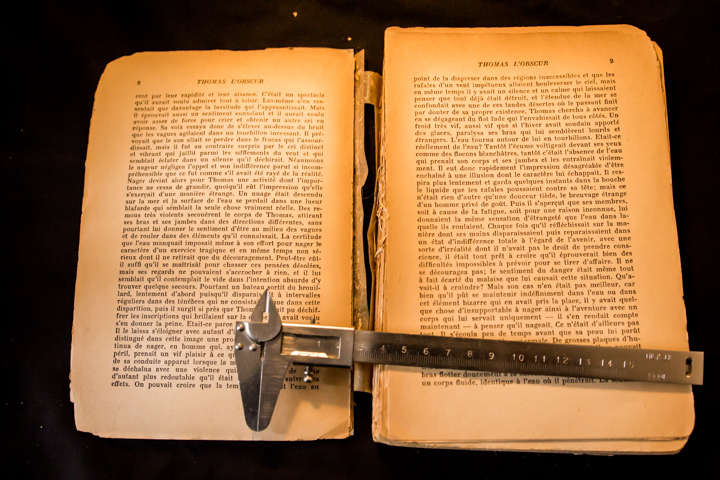 8 THOMAS L'OBSCUR
rent par leur rapidité et leur aisance. C'était un spectacle
qu'il aurait voulu admirer tout à loisir. Lui-même n'en res-
sentait que davantage la lassitude qui l'appesantissait. Mais
il éprouvait aussi un sentiment consolant et il aurait voulu
avoir assez de force pour crier et obtenir un autre cri en
réponse. Sa voix essaya donc de s'élever au-dessus du bruit
que les vagues agitaient dans un tourbillon incessant. Il pré-
voyait que le son allait se perdre dans le fracas qui l'assour-
dissait, mais il fut au contraire surpris par le cri distinct
et vibrant qui jaillit parmi les sifflements du vent et qui
semblait éclater dans un silence qu'il déchirait. Néanmoins
le nageur négligea l'appel et son indifférence parut si incom-
préhensible que ce fut comme s'il avait été rayé de la réalité.
Nager devint alors pour Thomas une activité dont l'impor-
tance ne cessa de grandir, quoiqu'il eût l'impression qu'elle
s'exerçait d'une manière étrange. Un nuage était descendu
sur la mer et la surface de l'eau se perdait dans une lueur
blafarde qui semblait la seule chose vraiment réelle. Des re-
mous très violents secouèrent le corps de Thomas, attirant
ses bras et ses jambes dans des directions différentes, sans
pourtant lui donner le sentiment d'être au milieu des vagues
et de rouler dans des éléments qu'il connaissait. La certitude
que l'eau manquait imposait même à son effort pour nager le
caractère d'un exercice tragique et en même temps non sé-
rieux dont il ne retirait que du découragement. Peut-être eût-
il suffi qu'il se maîtrisât pour chasser ces pensées désolées,
mais ses regards ne pouvaient s'accrocher à rien, et il lui
semblait qu'il contemplait le vide dans l'intention absurde d'y
trouver quelque secours. Pourtant un bateau sortit du brouil-
lard, lentement d'abord puisqu'il disparut à intervalles
réguliers dans des ténèbres qui ne dans cette
disparition, puis il surgit si près que Thomas put déchif-
frer les inscriptions qui brillaient sur la avait voulu
s'en donner la peine. Etait-ce
Il le laissa s'éloigner avec autant d'
distingué dans cette image une
tinua de nager, en homme qui,
péril, prenait un vif plaisir à ce
de sa conduite apparut lorsque la
se déchaîna avec une violence
d'autant plus redoutable qu'il était
effets. On pouvait croire que la et l'eau au
THOMAS L'OBSCUR 9
point de la disperser dans des régions inaccessibles et que les
rafales d'un vent impétueux allaient bouleverser le ciel, mais
en même temps il y avait un silence et un calme qui laissaient
penser que tout déjà était détruit, et l'étendue de la mer se
confondait avec une de ces landes désertes où le passant finit
par douter de sa propre existence. Thomas chercha à avancer
en se dégageant du flot fade qui l'envahissait de tous côtés. Un
froid très vif, comme si l'hiver avait soudain apporté
des glaces, paralysa ses bras qui lui semblèrent lourds et
étrangers. L'eau tourna autour de lui en tourbillons. Etait-ce
réellement de l'eau? Tantôt l'écume voltigeait devant ses yeux
comme des flocons blanchâtres, tantôt c'était l'absence de l'eau
qui prenait son corps et ses jambes et les entraînait violem-
ment. Il eut donc rapidement l'impression désagréable d'être
enchaîné à une illusion dont le caractère lui échappait. Il res-
pira plus lentement et garda quelques instants dans la bouche
le liquide que les rafales poussaient contre sa tête; mais ce
n'était rien d'autre qu'une douceur tiède, le breuvage étrange
d'un homme privé de goût. Puis il s'aperçut que ses membres,
soit à cause de la fatigue, soit pour une raison inconnue, lui
donnaient la même sensation d'étrangeté que l'eau dans la-
quelle ils roulaient. Chaque fois qu'il réfléchissait sur la ma-
nière dont ses mains disparaissaient puis reparaissaient dans
un état d'indifférence totale à l'égard de l'avenir, avec une
sorte d'irréalité dont il n'avait pas le droit de prendre cons-
cience, il était tout prêt à croire qu'il éprouverait bien des
difficultés impossibles à prévoir pour se tirer d'affaire. Il ne
se découragea pas; le sentiment du danger était même tout
à fait écarté du malaise que lui causait cette situation. Qu'a-
vait-il à craindre? Mais son cas n'en était pas meilleur, car
bien qu'il pût se maintenir indéfiniment dans l'eau ou dans
cet élément bizarre qui en avait pris la place, il y avait quel-
que chose d'insupportable à nager ainsi à l'aventure avec un
corps qui lui servait uniquement — il s'en rendait compte
maintenant — à penser qu'il nageait. Ce n'était d'ailleurs pas
tout. Il s'écoula peu de temps avant que sa peau lui parût
De grosses plaques d'hu-
4 5 6 7 8 9 10 11 12 13 14 15
bras flotter doucement à la
un corps fluide, identique à l'eau où il pénétrait.